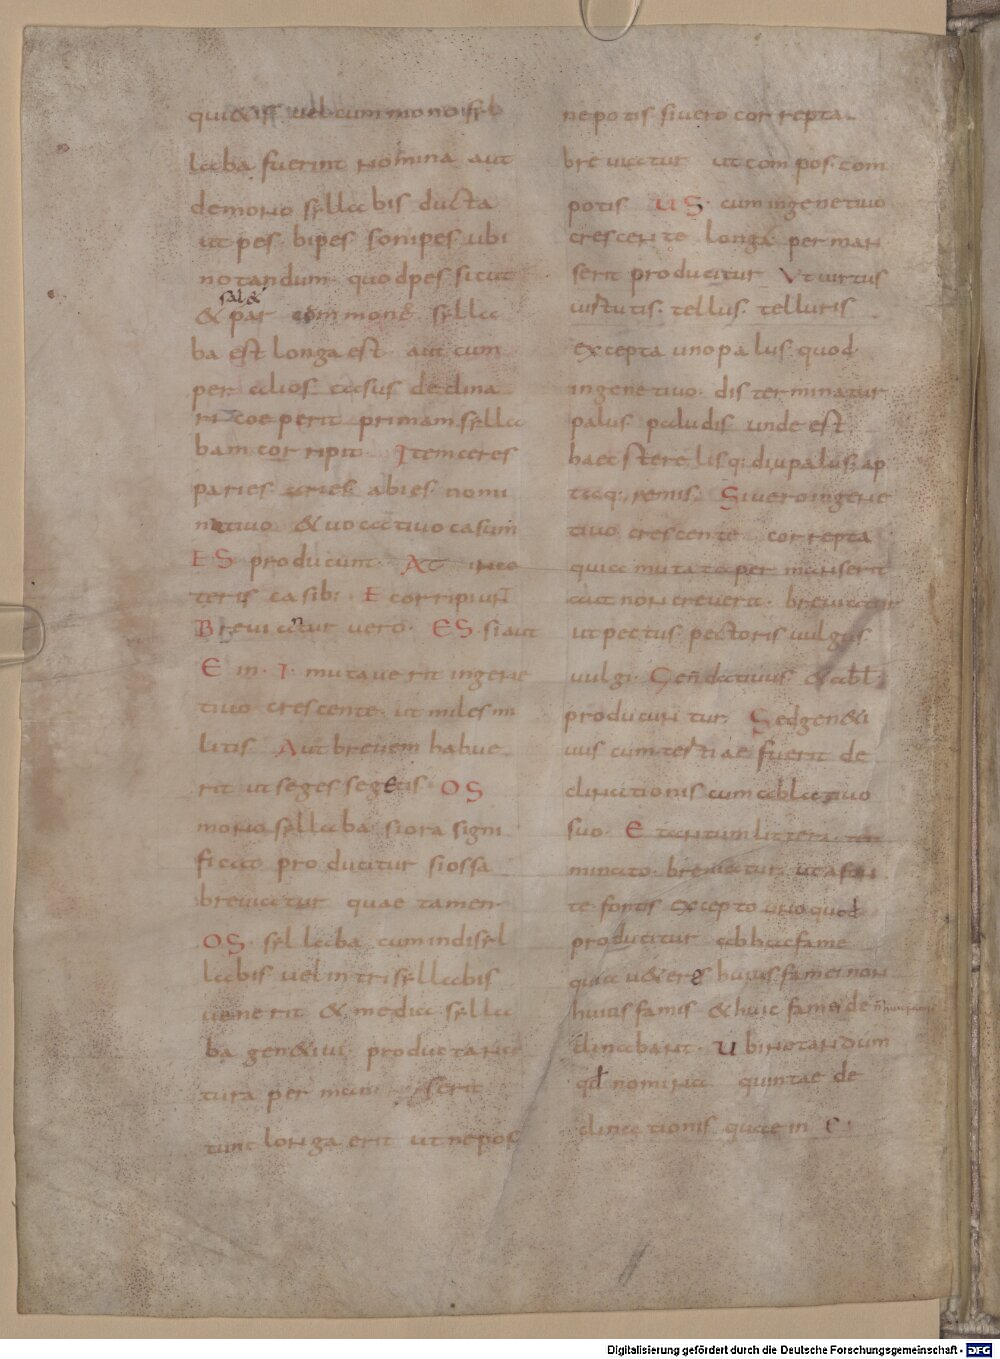 qui&iss uel cum monosyl
laba fuerint nomina aut
demono syllabis ducta
ut pes bipes sonipes ubi
notandum quod pes sicut
sal&
& par communē sylla
ba est longa est aut cum
per alios casus declina
ri coeperit primam sylla
bam corripit Item ceres
paries aries abies nomi
natiuo & uocatiuo casum
ES producunt At in ce
teris casib; E corripiunt
Breuiantur uero ES si aut
E in I mutauerit in gene
tiuo crescente ut miles mi
litis Aut breuem habue
rit ut seges segetis OS
mono syllaba si ora signi
ficato producitur si ossa
breuiatur quae tamen
OS syllaba cum in disyl
labis uel in trisyllabis
uenerit & media sylla
ba gen&iui producta na
tura per man serit
tunc longa erit ut nepos
nepotis si uero correpta
breuiatur ut compos com
potis US cum in genetiuo
crescente longa perman
serit producitur Ut uirtus
uirtutis tellus telluris
excepta uno palus quod
in genetiuo disterminatur
palus paludis unde est
haec sterelisq; diu palus ap
taq; remis Si uero in gene
tiuo crescente correpta
quia mutata permanserit
aut non creuerit breuiatur
ut pectus pectoris uulgus
uulgi Geñ datiuus & abł
producuntur Sed gen&i
uus cum tertiae fuerit de
clinationis cum ablatiuo
suo E tantum littera ter
minato breuiatur ut a fon
te fontis excepto uno quod
producitur ab hac fame
quia u&eres huius famei non
huius famis & huic famei de
clinabant Ubi notandum
qđ nomina quintae de
clinationis quae in E
Digitalisierung gefördert durch die Deutsche Forschungsgemeinschaft - DFG